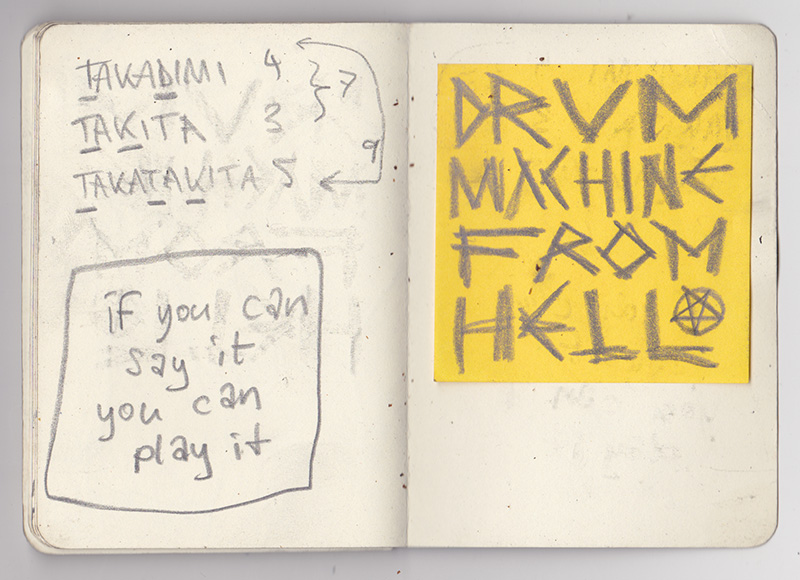 TAKADIMI 4
TAKITA 3
TAKATAKITA 5
7
9
if you can
say it
you can
play it
DRUM
MACHINE
FROM
HELL